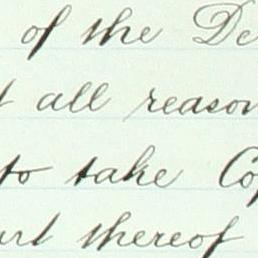 of the De
t all reason
to take Cop
art thereof